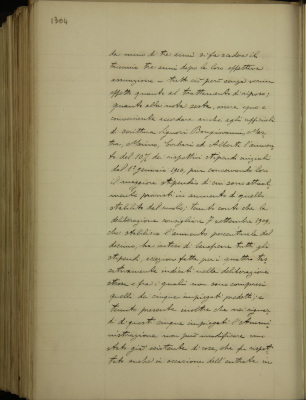 1304
da meno di tre anni si fa scadere il
triennio tre anni dopo la loro effettiva
assunzione - tutto ciò però senza verun
effetto quanto al trattamento di riposo;
quanto alla nota sesta, se
conveniente accordare anche agli ufficiali
di scrittura Signori Bongiovanni,
Merino, ed Alberti l'aumen
to del 10% sui rispettivi stipendi
dal 1° gennaio 1910, pur conservando loro
il maggiore stipendio di cui sono attual
mente provvisti in aumento di quello
stabilito dal ruolo; tenuto conto che la
deliberazione consigliare 7 settembre 1909,
che stabilisce l'aumento percentuale del
decimo, ha inteso di beneficare tutti gli
stipendi, eccezion fatta per i
tassativamente indicati nella deliberazione
stessa e fra i quali non sono compresi
quelli dei cinque impiegati predetti; e
tenuto presente inoltre che nei riguar
di di questi cinque impiegati l'Ammi
nistrazione non può modificare uno
stato già esistente di cose, che fu rispet
tato anche in occasione dell'entrata in